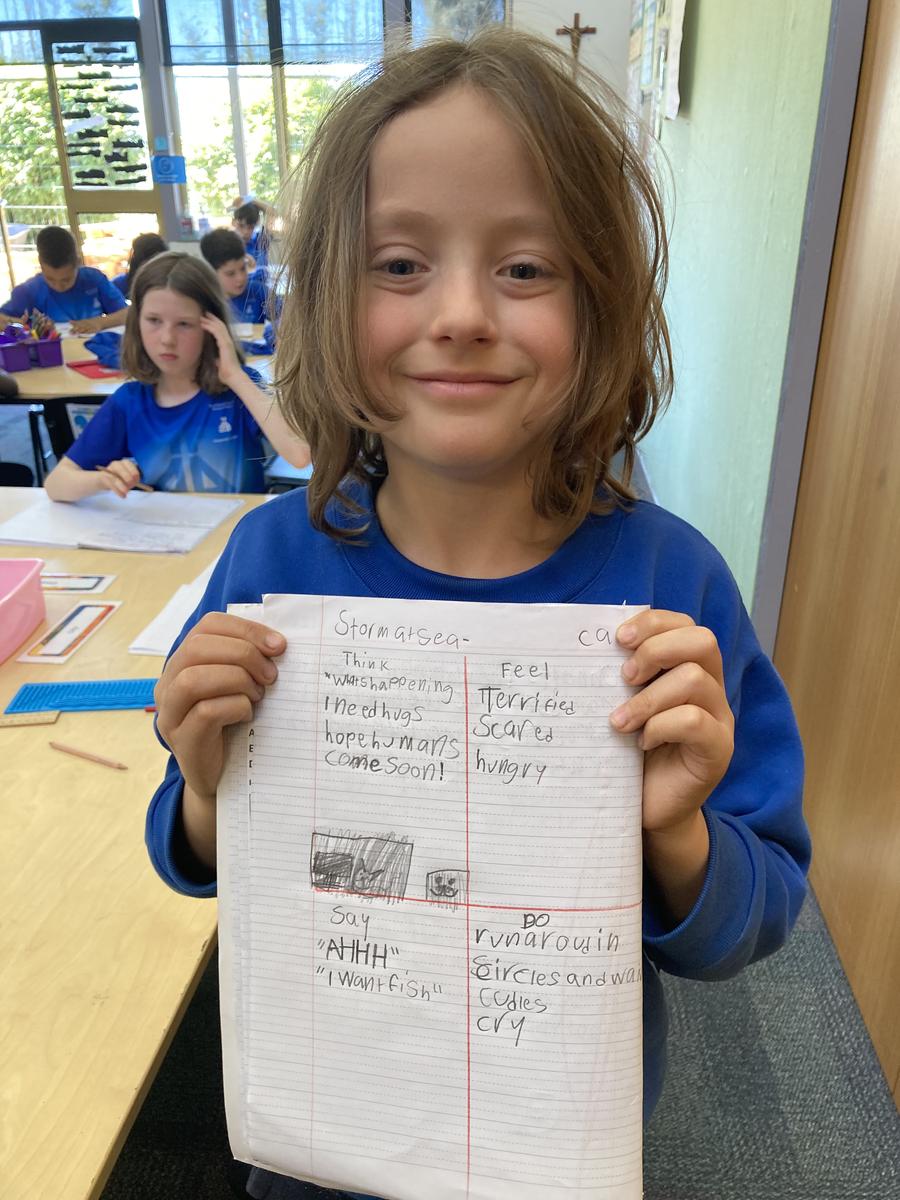 Stormatsea-
Think
"Whatshappening
Ineedhugs
hopehumans
comesoon!
Feel
Terrified
Scared
hungry
Say
"AHHH"
"Iwantfish"
DO
runaroudin
circlesand
cudles
cry
A
E